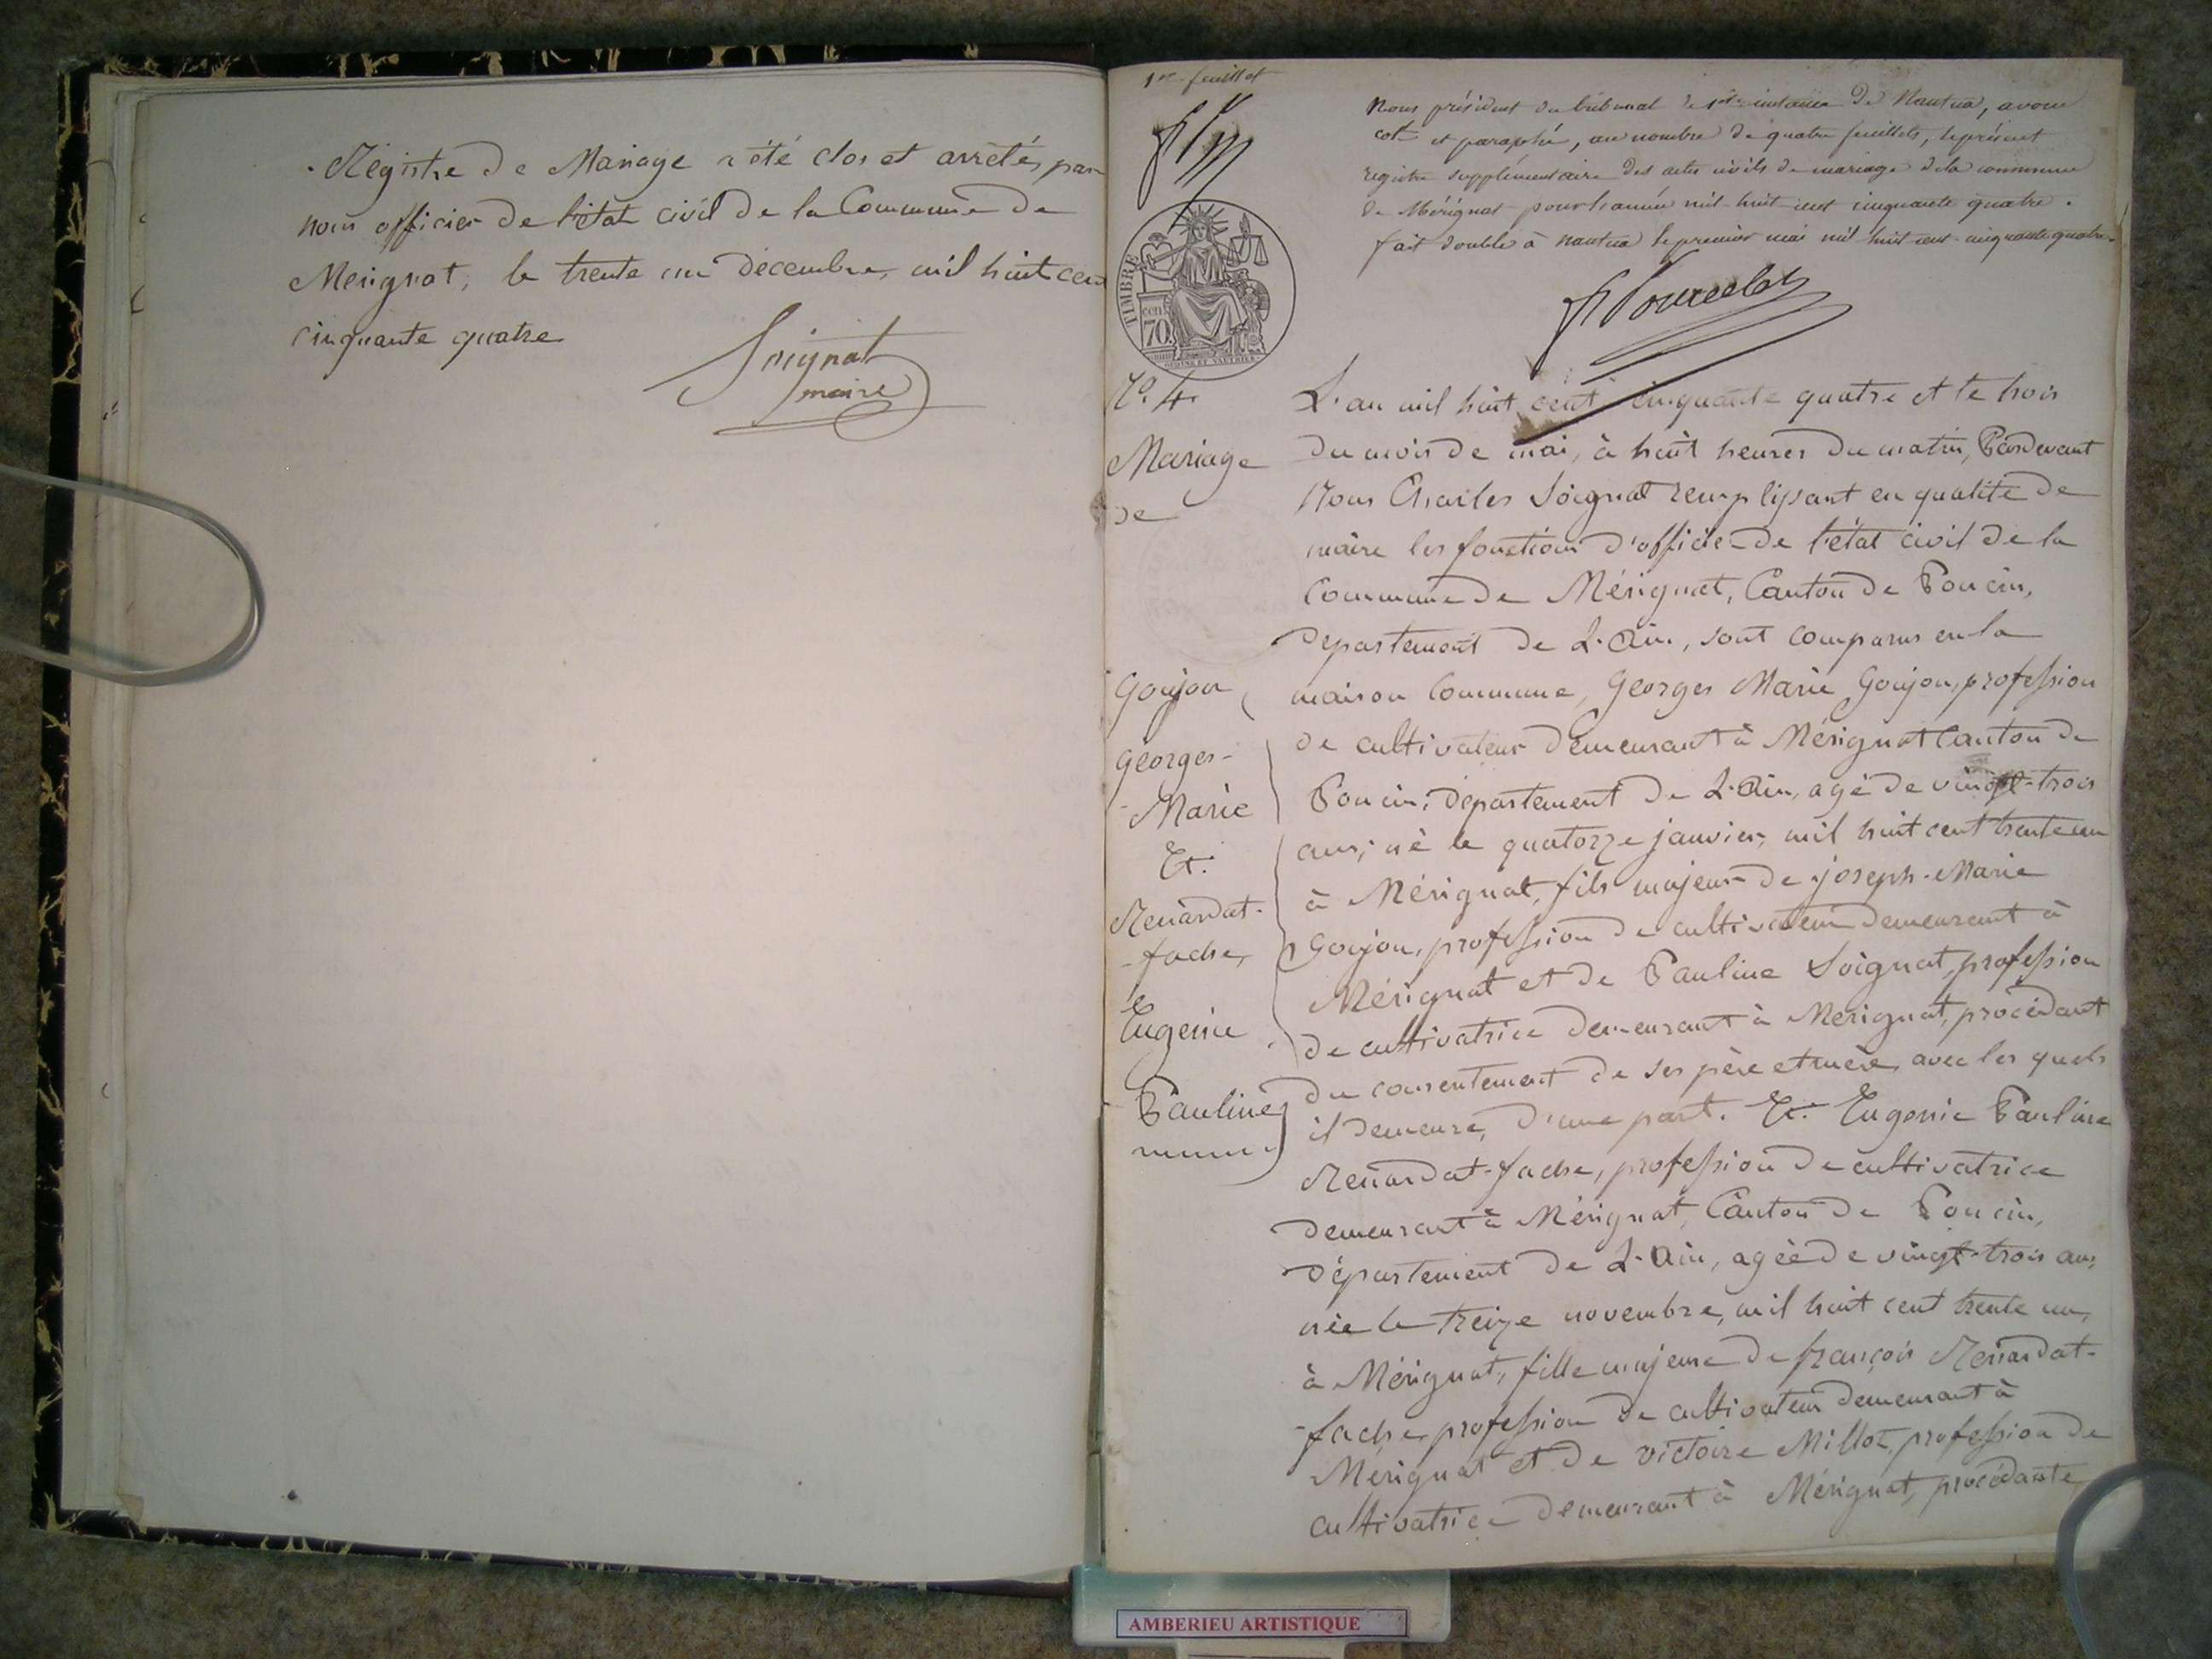 Régistre de Mariage a été clos et arrêtés par
nous officier de l'état civil de la Commune de
Merignat, le trente un décembre, mil huit cent
cinquante quatre
Soignat
maire
1er feuillet
Nous président du tribunal de 1ère instance de Nantua, avons
coté et paraphé, au nombre de quatre feuillets, le présent
registre supplémentaire des actes civils de mariage de la commune
de Mérignat pour l'année mil-huit-cent cinquante quatre.
fait double à nantua le premier mai mil huit cent cinquante quatre
TIMBRE
70
cen
No. 4
Mariage
de
Goujon
Georges-
-Marie
Et.
Renardat-
-fache,
Eugenie
Pauline
L'an mil huit cent cinquante quatre et le trois
du mois de mai, à huit heures du matin, Pardevant
Nous Charles Soignat remplissant en qualité de
maire les fonctions d'officier de l'état civil de la
Commune de Mérignat, Canton de Poncin,
département de L'Ain, sont comparus en la
maison Commune, Georges Marie Goujon, profession
de cultivateur demeurant à Mérignat Canton de
Poncin, département de L'Ain, agé de vingt-trois
ans, né le quatorze janvier, mil huit cent trente un
à Mérignat, fils majeur de joseph-Marie
Goujon, profession de cultivateur demeurant à
Mérignat et de Pauline Soignat, profession
de cultivatrice demeurant à Merignat, procédant
du consentement de ses père et mère, avec les quels
il demeure, d'une part. Et. Eugenie Pauline
Renardat-fache, profession de cultivatrice
demeurant à Mérignat, Canton de Poncin,
département de L'Ain, agée de vingt-trois ans,
née le treize novembre, mil huit cent trente un,
à Mérignat, fille majeure de françois Renardat-
-fache, profession de cultivateur demeurant à
Merignat et de victoire Millot, profession de
cultivatrice demeurant à Mérignat, procédante
AMBERIEU ARTISTIQUE